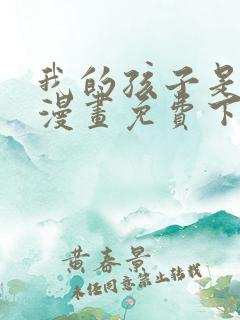 我的孩子是
漫畫免費下
黄春景
未经同意禁止转载